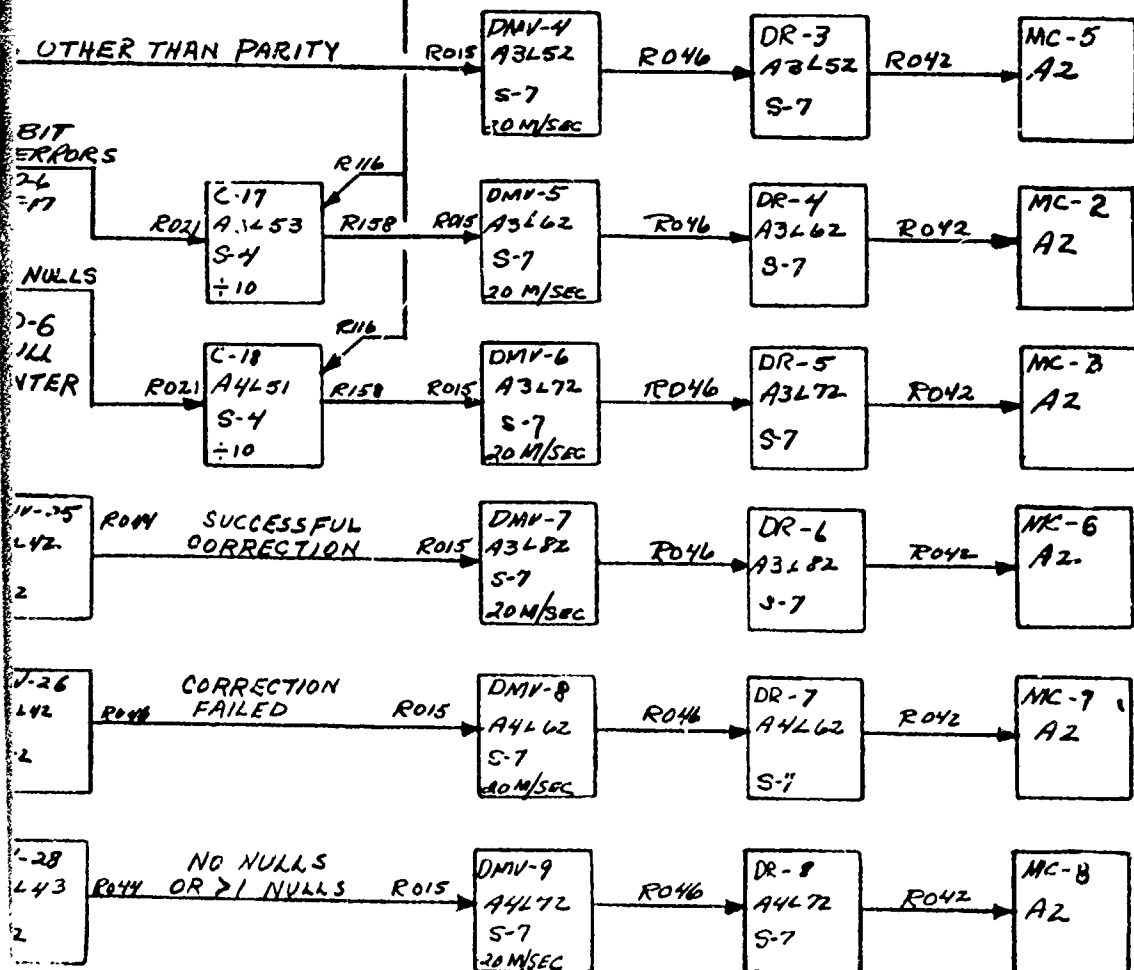 OTHER THAN PARITY
R015
DMV-4
A3L52
S-7
20 M/SEC
R046
DR-3
A3L52
S-7
R042
MC-5
A2
BIT
ERRORS
R021
R116
C-17
S-4
÷10
R158
R015
DMV-5
A3L62
S-7
20 M/SEC
R046
DR-4
A3L62
S-7
R042
MC-2
A2
NULLS
R021
R116
C-18
A4L51
S-4
÷10
R158
R015
DMV-6
A3L72
S-7
20 M/SEC
R046
DR-5
A3L72
S-7
R042
MC-3
A2
R044
SUCCESSFUL
CORRECTION
R015
DMV-7
A3L82
S-7
20 M/SEC
R046
DR-6
A3L82
S-7
R042
MC-6
A2
CORRECTION
FAILED
R015
DMV-8
A4L62
S-7
20 M/SEC
R046
DR-7
A4L62
S-7
R042
MC-7
A2
R044
NO NULLS
OR >1 NULLS
R015
DMV-9
A4L72
S-7
20 M/SEC
R046
DR-8
A4L72
S-7
R042
MC-8
A2